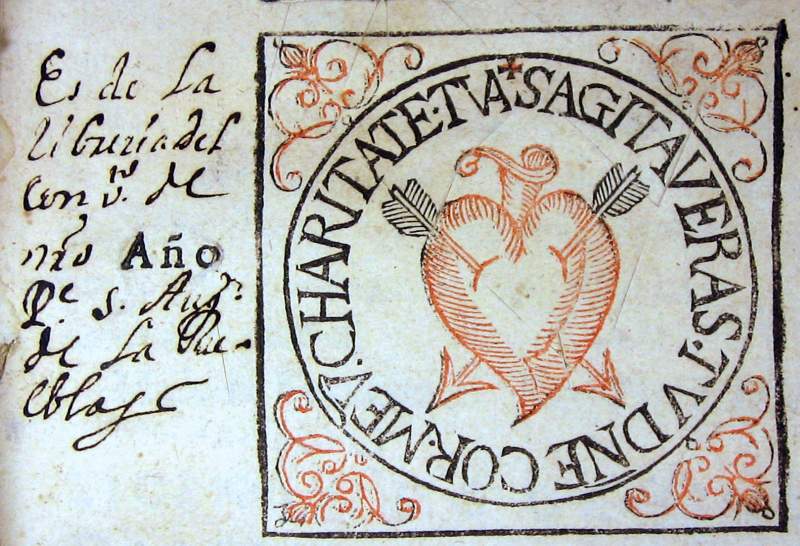 Es de La
libreria del
conv.to de
nro Año
Pe s. Aug.n
de la Pue-
bla
SAGITAVERAS·TV DNE COR·MEV·CHARITATE·TVA